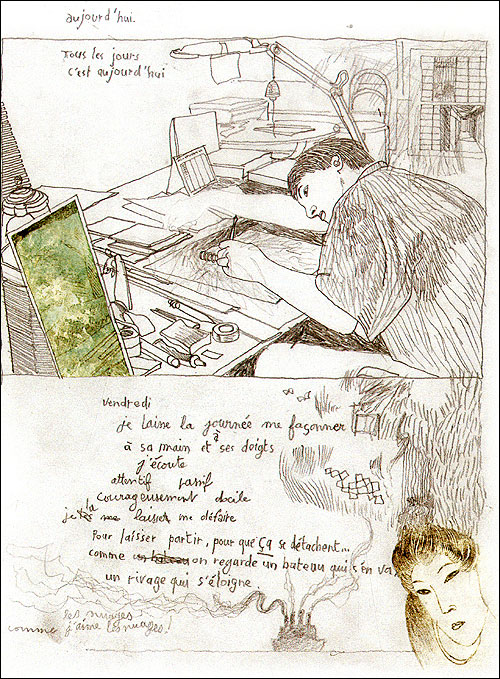 aujourd'hui.
Tous les jours
c'est aujourd'hui
vendredi
je laisse la journée me façonner
à sa main et à ses doigts
j'écoute
attentif passif
courageusement docile
je la laisse me défaire
Pour laisser partir, pour que ça se détachent...
comme on regarde un bateau qui s'en va
un rivage qui s'éloigne.
les nuages !
comme j'aime les nuages !